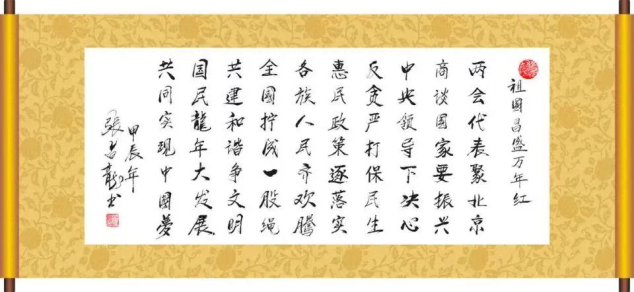 祖國昌盛万年红
两会代表聚北京
商谈国家要振兴
中央领导下决心
反贪严打保民生
惠民政策逐落实
各族人民齐欢腾
全國拧成一股绳
共建和谐争文明
国民龍年大发展
共同实现中国夢
甲辰年
張吉龍书